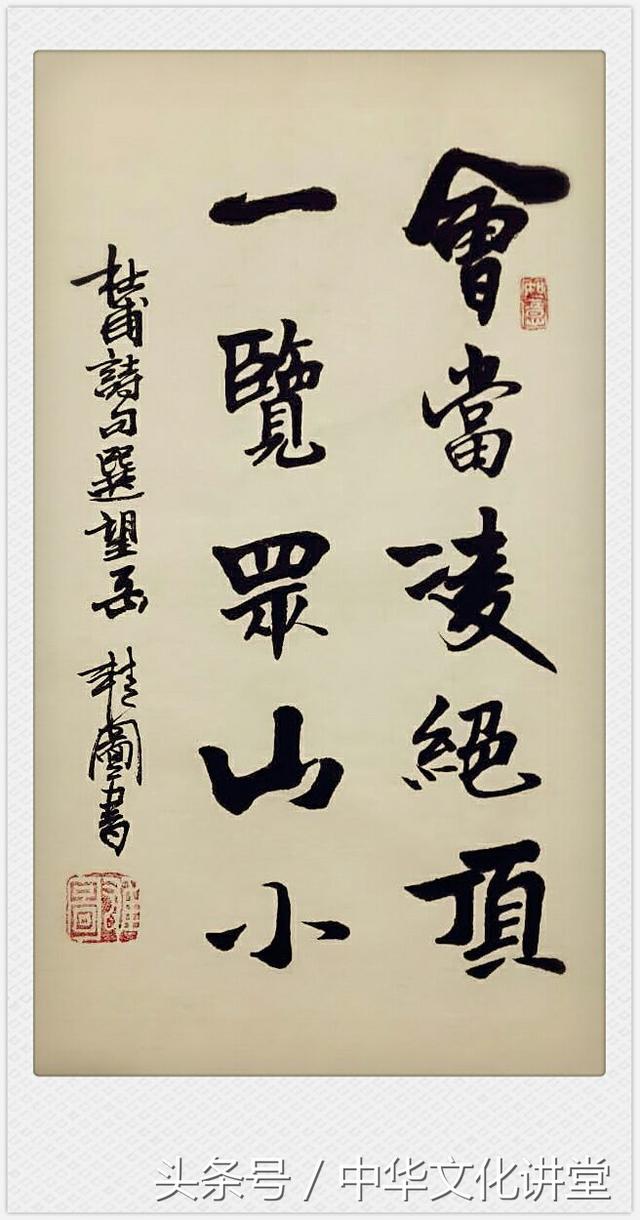 會當凌絕頂
如意
一覽眾山小
杜甫詩句選望岳
圖書
头条号 / 中华文化讲堂